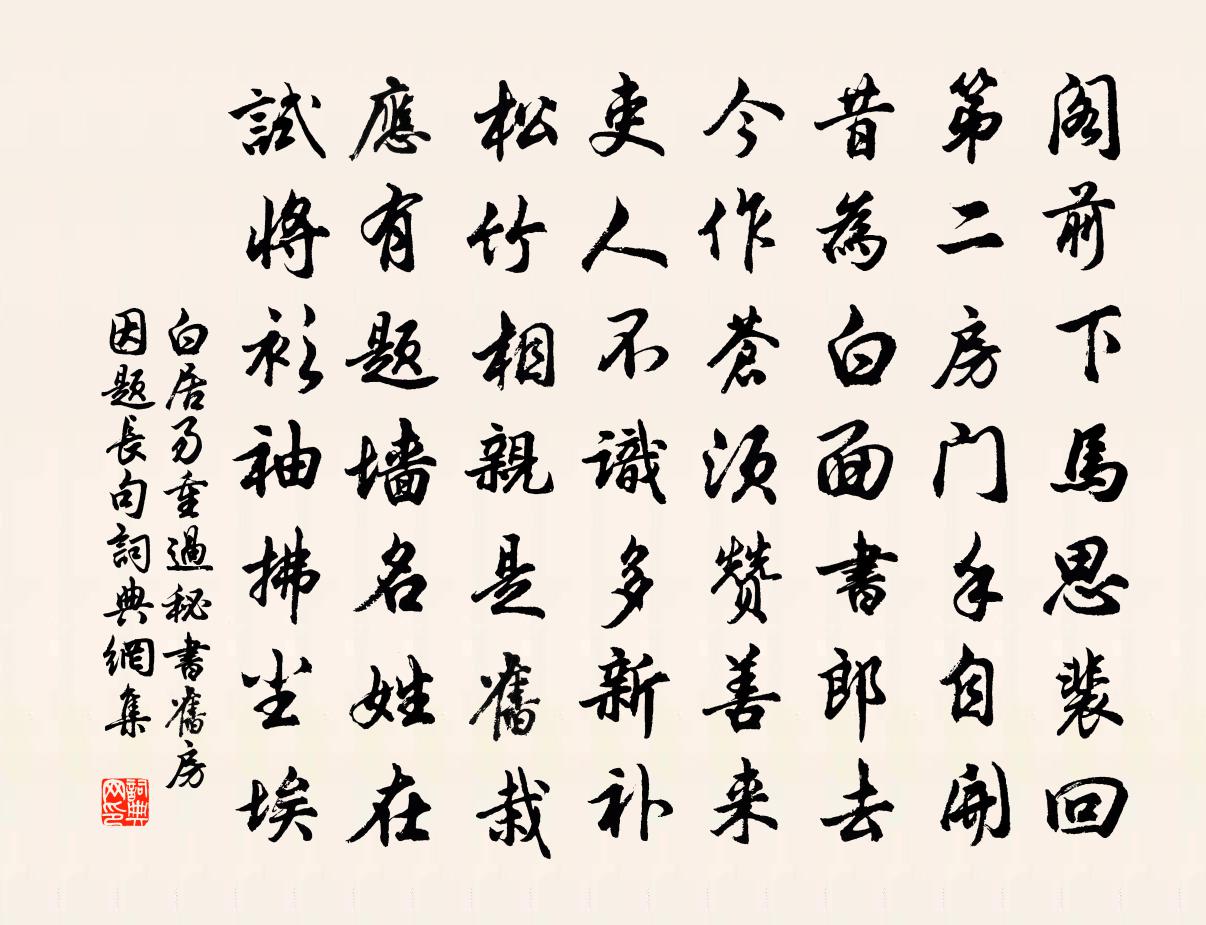 阁前下馬思裴回
第二房门手自開
昔為白面書郎去
今作蒼须赞善来
吏人不識多新补
松竹相親是舊栽
應有题墙名姓在
試將衫袖拂尘埃
白居易重過秘書舊房
因题長句詞典網集
詞典
网印